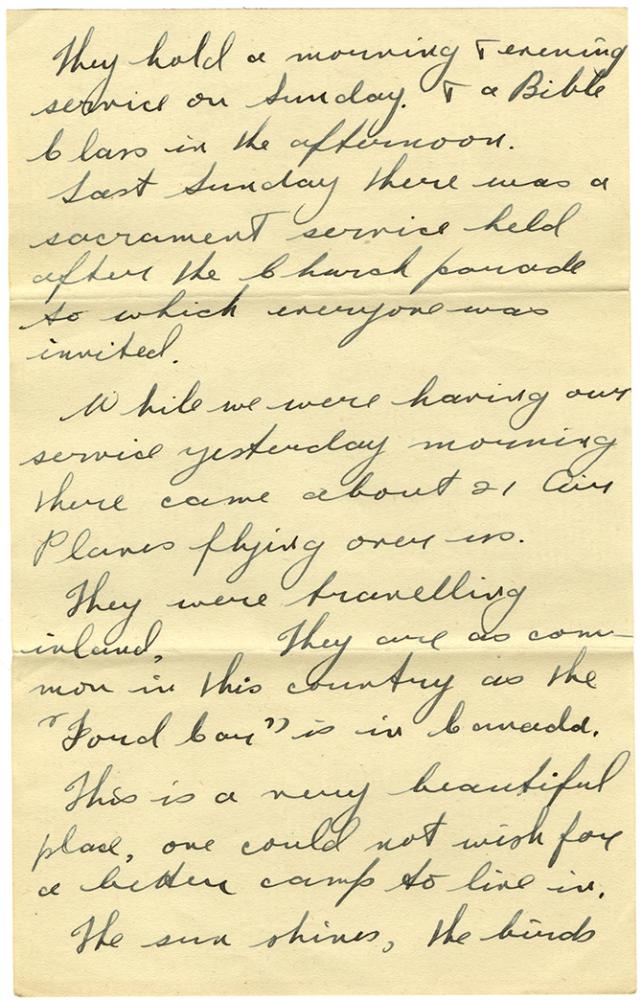 They hold a morning & evening
service on Sunday. & a Bible
Class in the afternoon.
Last Sunday there was a
sacrament service held
after the Church parade
to which everyone was
invited.
While we were having our
service yesterday morning
there came about 21 Air
Planes flying over us.
They were travelling
inland, They are as com-
mon in this country as the
"Ford Car" is in Canada.
This is a very beautiful
place, one could not wish for
a better camp to live in.
The sun shines, the birds